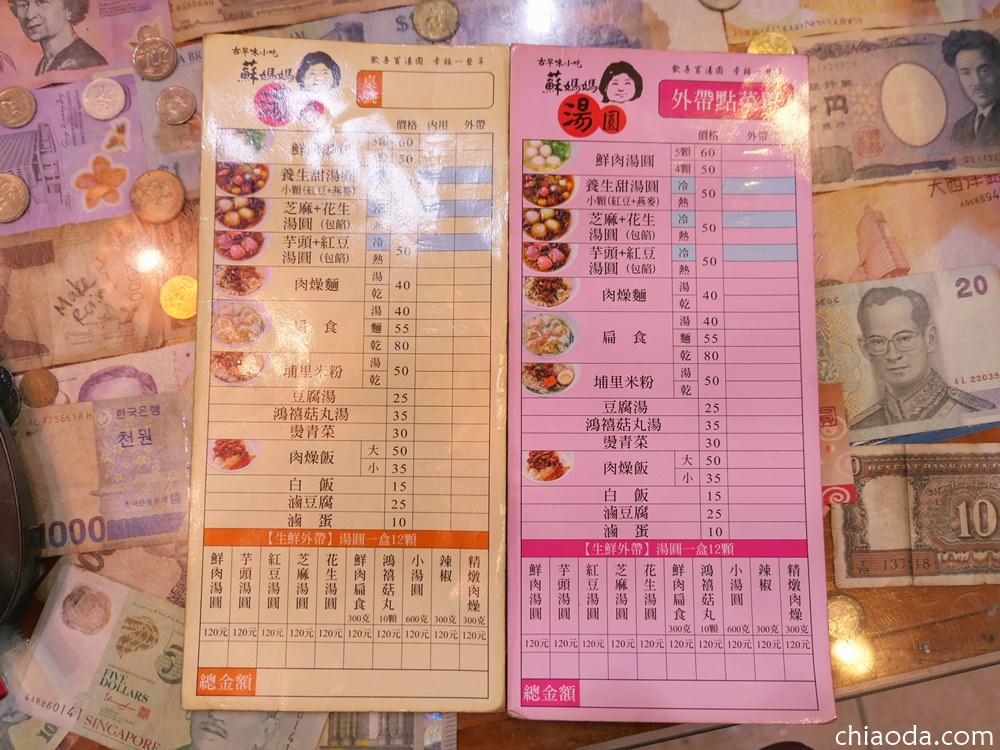 古早味小吃
蘇媽媽
湯圓
歡喜買湯圓 幸福一整年
桌號
價格 內用 外帶
鮮肉湯圓 5顆 60
50
養生甜湯圓
小顆(紅豆+燕麥)
芝麻+花生
湯圓(包餡)
芋頭+紅豆 冷
湯圓(包餡) 熱 50
肉燥麵 湯 乾 40
扁 食 湯 40
麵 55
乾 80
埔里米粉 湯 乾 50
豆腐湯 25
鴻禧菇丸湯 35
燙青菜 30
肉燥飯 大 50
小 35
白 飯 15
滷豆腐 25
滷 蛋 10
【生鮮外帶】湯圓一盒12顆
鮮肉湯圓 芋頭湯圓 紅豆湯圓 芝麻湯圓 花生湯圓 鮮肉扁食 鴻禧菇丸 小湯圓 辣椒 精燉肉燥
300克 10顆 600克 300克 300克
120元 120元 120元 120元 120元 120元 120元 120元 120元 120元
總金額
古早味小吃
蘇媽媽
湯圓
歡喜買湯圓 幸福一整年
外帶點菜單
價格 外帶
鮮肉湯圓 5顆 60
4顆 50
養生甜湯圓 冷
小顆(紅豆+燕麥) 熱 50
芝麻+花生 冷
湯圓(包餡) 熱 50
芋頭+紅豆 冷
湯圓(包餡) 熱 50
肉燥麵 湯 乾 40
扁 食 湯 40
麵 55
乾 80
埔里米粉 湯 乾 50
豆腐湯 25
鴻禧菇丸湯 35
燙青菜 30
肉燥飯 大 50
小 35
白 飯 15
滷豆腐 25
滷 蛋 10
【生鮮外帶】湯圓一盒12顆
鮮肉湯圓 芋頭湯圓 紅豆湯圓 芝麻湯圓 花生湯圓 鮮肉扁食 鴻禧菇丸 小湯圓 辣椒 精燉肉燥
300克 10顆 600克 300克 300克
120元 120元 120元 120元 120元 120元 120元 120元 120元 120元
總金額
한국은행
천원
1000
5
FIVE
DOLLARS
SINGAPORE
円
大西洋
20
RESERVE BANK OF
10
chiaoda.com